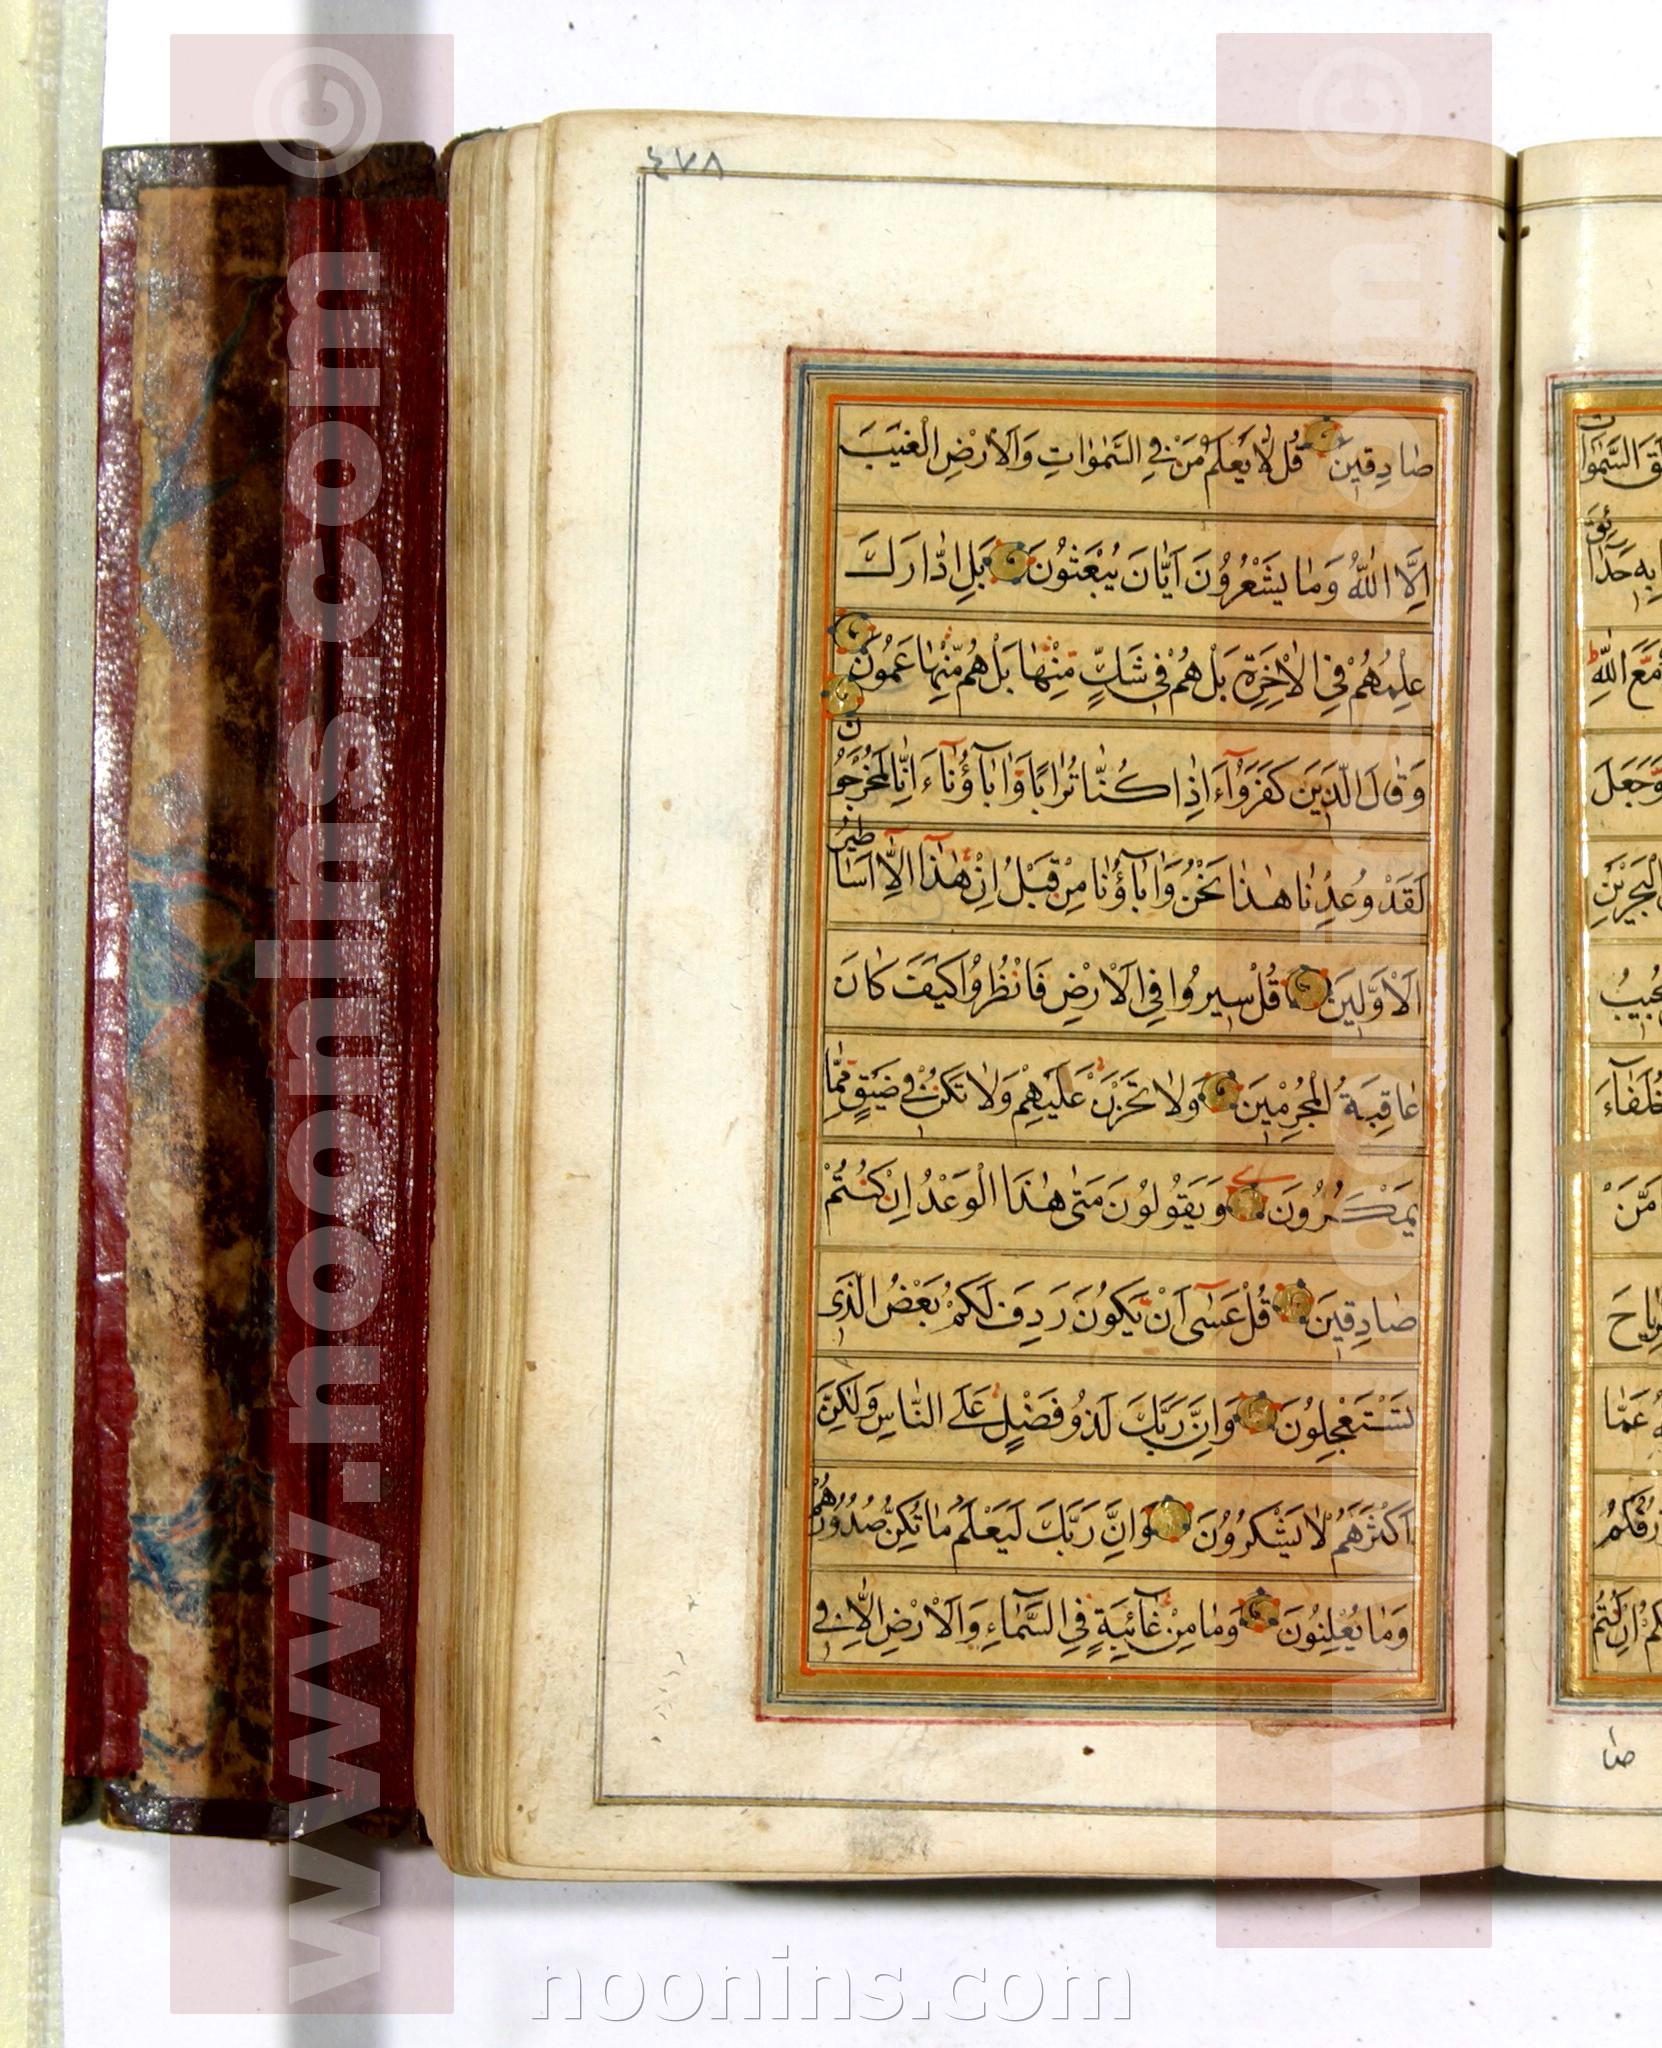 ٤٧٨
صٰادِقينَ قُل لٰا يَعْلَمُ مَنْ فِي السَّمٰوٰاتِ وَالْاَرْضِ الْغَيْبَ
اِلَّا اللّٰهُ وَمٰا يَشْعُرُونَ اَيّٰانَ يُبْعَثُونَ بَلِ ادّٰارَكَ
عِلْمُهُمْ فِي الْاٰخِرَةِ بَلْ هُمْ في شَكٍّ مِنْهٰا بَلْ هُمْ مِنْهٰا عَمُونَ
وَقٰالَ الَّذينَ كَفَرُوٓا ءَاِذٰا كُنّٰا تُرٰابًا وَاٰبٰٓاؤُنٰٓا ءَاِنّٰا لَمُخْرَجُونَ
لَقَدْ وُعِدْنٰا هٰذٰا نَحْنُ وَاٰبٰٓاؤُنٰا مِنْ قَبْلُ اِنْ هٰذٰٓا اِلّٰٓا اَسٰاطيرُ
الْاَوَّلينَ قُلْ سيرُوا فِي الْاَرْضِ فَانْظُرُوا كَيْفَ كٰانَ
عٰاقِبَةُ الْمُجْرِمينَ وَلٰا تَحْزَنْ عَلَيْهِمْ وَلٰا تَكُنْ في ضَيْقٍ مِمّٰا
يَمْكُرُونَ وَيَقُولُونَ مَتٰى هٰذَا الْوَعْدُ اِنْ كُنْتُمْ
صٰادِقينَ قُلْ عَسٰٓى اَنْ يَكُونَ رَدِفَ لَكُمْ بَعْضُ الَّذي
تَسْتَعْجِلُونَ وَاِنَّ رَبَّكَ لَذُو فَضْلٍ عَلَى النّٰاسِ وَلٰكِنَّ
اَكْثَرَهُمْ لٰا يَشْكُرُونَ وَاِنَّ رَبَّكَ لَيَعْلَمُ مٰا تُكِنُّ صُدُورُهُمْ
وَمٰا يُعْلِنُونَ وَمٰا مِنْ غٰٓائِبَةٍ فِي السَّمٰٓاءِ وَالْاَرْضِ اِلّٰا في
السَّمٰوٰا
مَعَ اللّٰهِ
وَجَعَلَ
الْبَحْرَيْنِ
يُجيبُ
خُلَفٰٓاءَ
اَمَّنْ
عَمّٰا
صا
www.noonins.com ©
www.noonins.com ©
noonins.com